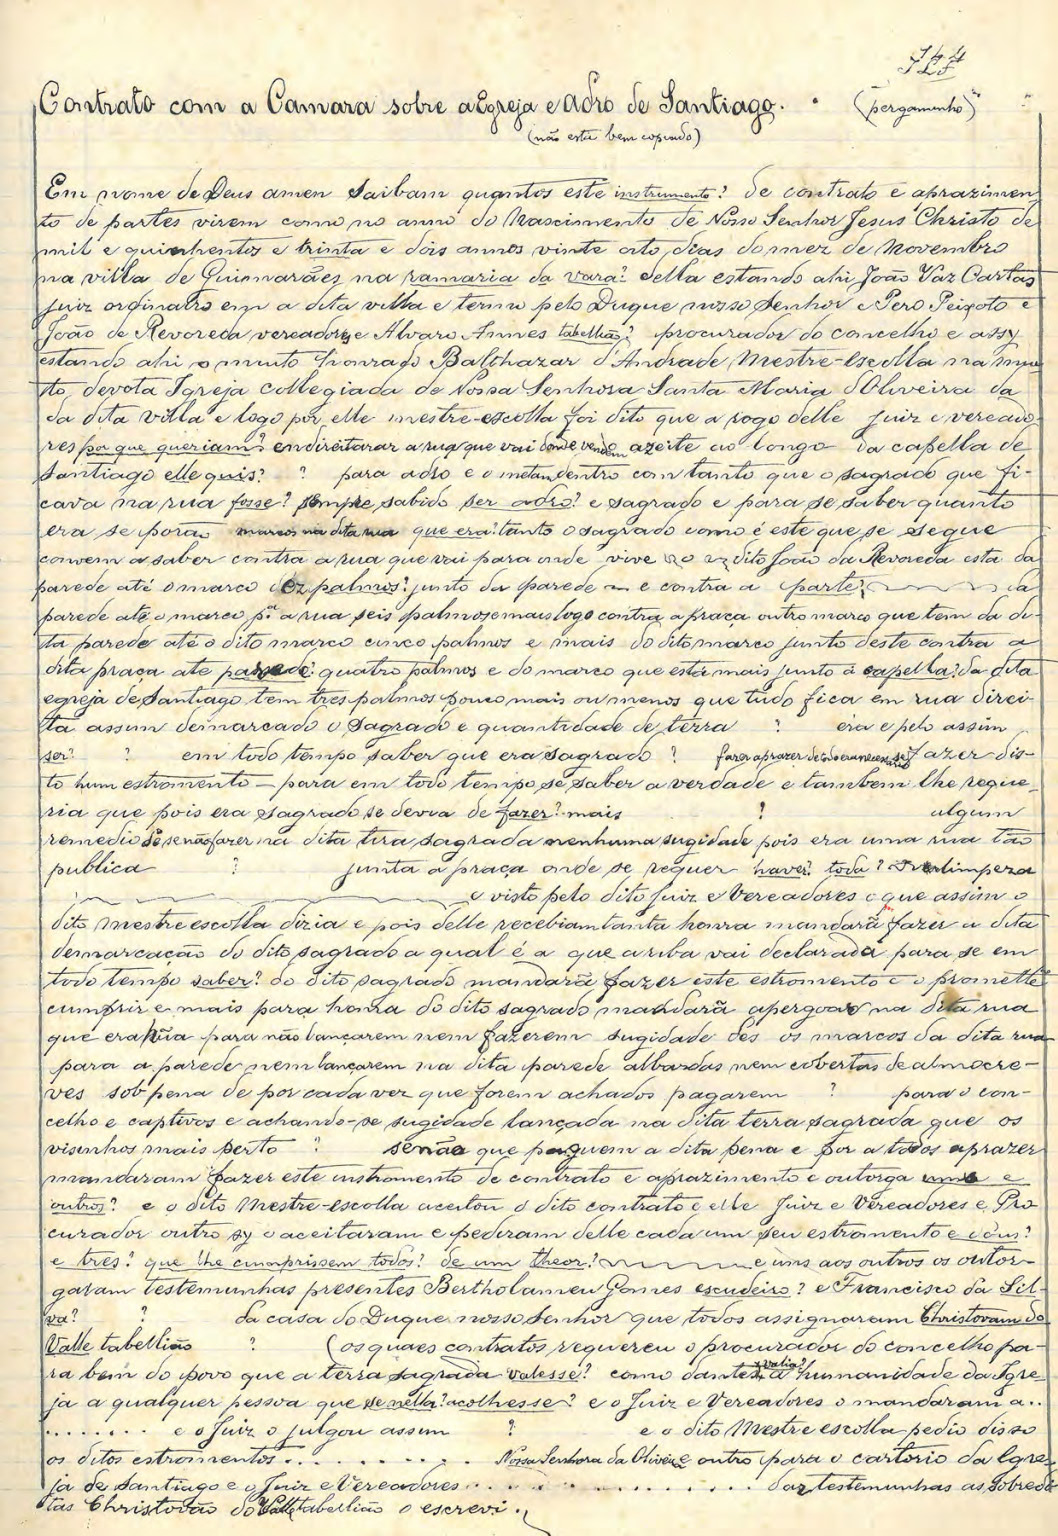 Contrato com a Camara sobre a Egreja e Adro de Santiago. (pergaminho)
(não está bem copiado)
Em nome de Deus amen Saibam quantos este instrumento? de contrato e aprazimen
to de partes virem como no anno do Nascimento de Nosso Senhor Jesus Christo de
mil e quinhentos e trinta e dois annos vinte oito dias do mez de Novembro
na villa de Guimarães na ramaria da vara? della estando ahi João Vaz Cartas
Juiz ordinairo em a dita villa e termo pelo Duque nosso Senhor e Pero Peixoto e
João de Revoreda vereadores e Alvaro Annes tabellião? procurador do concelho e assy
estando ahi o muito honrado Balthazar d'Andrade Mestre-Escolla na mui
to devota Igreja collegiada de Nossa Senhora Santa Maria d'Oliveira da
da dita villa e logo por elle mestre-escolla foi dito que a rogo delle Juiz e vereado
res por que queriam? endireitarar a rua que vai donde vendem azeite ao longo da capella de
Santiago elle quis? ? para adro e o metam dentro com tanto que o sagrado que fi-
cava na rua fosse? sempre sabido ser adro? e sagrado e para se saber quanto
era se porão marcos na dita rua que era? tanto o sagrado como é este que se segue
convem a saber contra a rua que vai para onde vive o dito João da Revoreda esta da
parede até o marco dez palmos? junto da parede e contra a parte? da
parede até o marco p.ª a rua seis palmos e mais logo contra a praça outro marco que tem da di-
ta parede até o dito marco cinco palmos e mais do dito marco junto deste contra a
dita praça ate parede? quatro palmos e do marco que está mais junto á capella? da dita
egreja de Santiago tem tres palmos pouco mais ou menos que tudo fica em rua direi-
ta assim demarcado o Sagrado e quantidade de terra ? era e pelo assim
ser? ? em todo tempo saber que era sagrado ? fazer dis-
to hum estromento — para em todo tempo se saber a verdade e tambem lhe reque-
ria que pois era sagrado se devia de fazer? mais ? algum
remedio se não fazer na dita tira sagrada nenhuma sugidade pois era uma rua tão
publica ? junta a praça onde se requer haver? toda? limpeza
e visto pelo dito Juiz e Vereadores o que assim o
dito mestre escolla dizia e pois delle recebiam tanta honra mandarã fazer a dita
demarcação do dito sagrado a qual é a que arriba vai declarada para se em
todo tempo saber? do dito sagrado mandarã fazer este estromento e o promettê
cumprir e mais para honra do dito sagrado mandarã apergoar na dita rua
que era hũa para não lançarem nem fazerem sugidade des os marcos da dita rua
para a parede nem lançarem na dita parede albardas nem cobertas de almocre-
ves sob pena de por cada vez que forem achados pagarem ? para o con-
celho e captivos e achando-se sugidade lançada na dita terra sagrada que os
visinhos mais perto ? senão que paguem a dita pena e por a todos aprazer
mandaram fazer este instromento de contrato e aprazimento e outorga uns e
outros? e o dito Mestre-escolla aceitou o dito contrato e elle Juiz e Vereadores e Pro
curador outro sy o aceitaram e pediram delle cada um seu estromento e dous?
e tres? que lhe cumprissem todos? de um theor? e uns aos outros os outor-
garam testemunhas presentes Bertholameu Gomes escudeiro? e Francisco da Sil-
va? ? da casa do Duque nosso Senhor que todos assignaram Christovam do
Valle tabellião ? (os quaes contratos requereu o procurador do concelho pa-
ra bem do povo que a terra sagrada valesse? como dantes valia? a humanidade da Igre-
ja a qualquer pessoa que se nella? acolhesse? e o Juiz e Vereadores o mandaram a..
........ e o Juiz o julgou assim ? e o dito Mestre escolla pedio disso
os ditos estromentos.. . . . . . . . Nossa Senhora da Oliveira e outro para o cartorio da Egre-
ja de Santiago e o Juiz e Vereadores . . . . . . . . . . . . das testemunhas as sobredi
tas Christovão do Valle tabellião o escrevi.